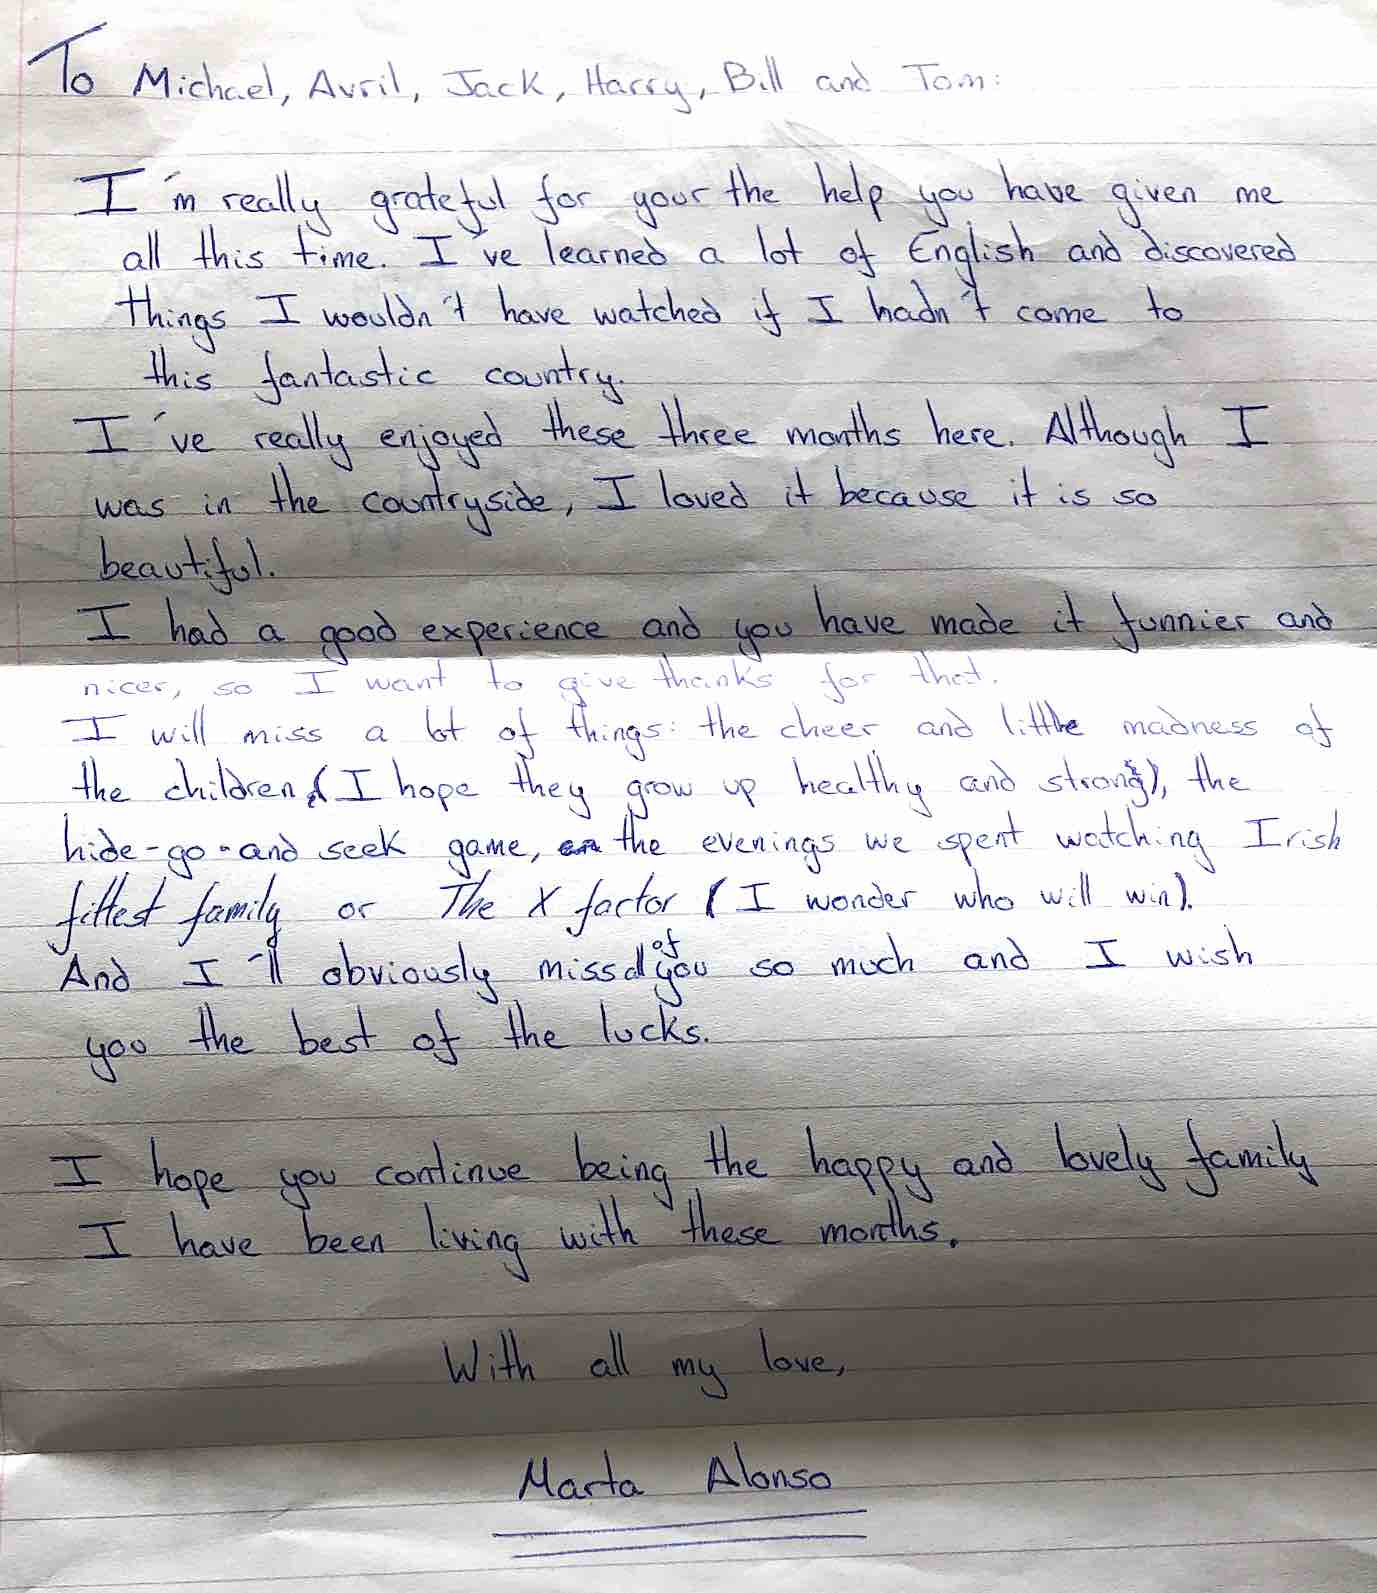 To Michael, Avril, Jack, Harry, Bill and Tom:
I'm really grateful for your the help you have given me
all this time. I've learned a lot of English and discovered
things I wouldn't have watched if I hadn't come to
this fantastic country.
I've really enjoyed these three months here. Although I
was in the countryside, I loved it because it is so
beautiful.
I had a good experience and you have made it funnier and
nicer, so I want to give thanks for that.
I will miss a lot of things: the cheer and little madness of
the children (I hope they grow up healthy and strong), the
hide-go-and seek game, the evenings we spent watching Irish
fittest family or The X factor (I wonder who will win).
And I'll obviously miss all of you so much and I wish
you the best of the lucks.
I hope you continue being the happy and lovely family
I have been living with these months.
With all my love,
Marta Alonso